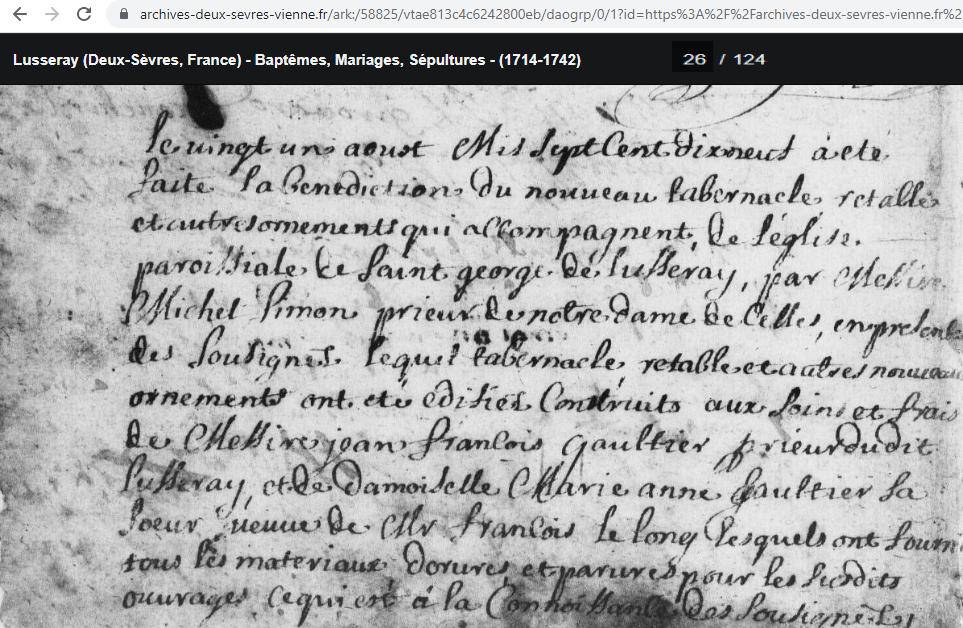 archives-deux-sevres-vienne.fr/ark:/58825/vtae813c4c6242800eb/daogrp/0/1?id=https%3A%2F%2Farchives-deux-sevres-vienne.fr%2
Lusseray (Deux-Sèvres, France) - Baptêmes, Mariages, Sépultures - (1714-1742) 26 / 124
le vingt un aoust Mil Sept Cent dixneuf à eté
faite la Benediction du nouveau tabernacle retable
et autres ornements qui accompagnent, de l'église
paroissiale de Saint george de lusseray, par Messire
Michel Simon prieur de notre dame de Celles, en presence
des Sousignés. lequel tabernacle, retable et autres nouveaux
ornements ont eté edifiés Construits aux Soins et frais
de Messire jean francois gaultier prieur dudit
lusseray, et de Damoiselle Marie anne gaultier Sa
Soeur veuve de Mr francois le long lesquels ont fourni
tous les materiaux dorures et parures pour les Susdits
ouvrages, ce qui est à la Connoissance des Sousignés